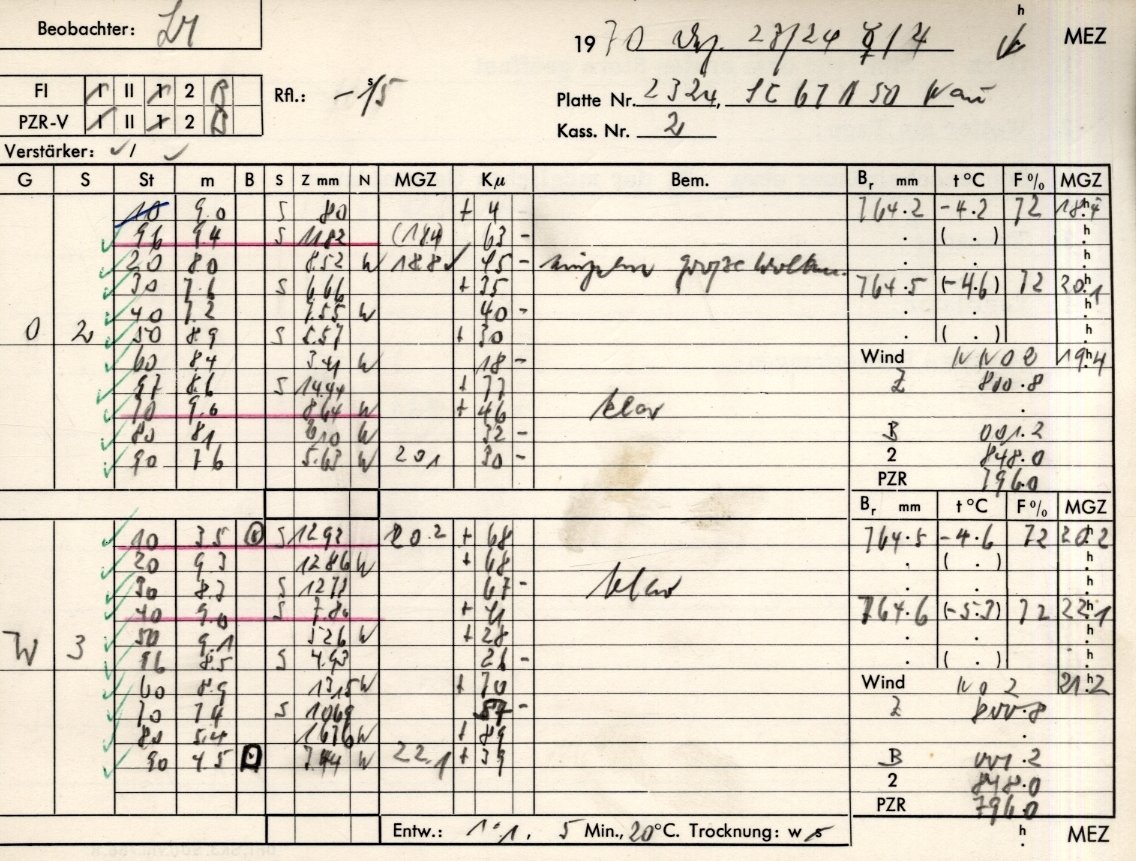 Beobachter:
19 70 23/24 h MEZ
FI 1 II 1 2 B Rfl.: -1,5 s
Platte Nr. 2324,
PZR-V 1 II 1 2 B
Kass. Nr. 2
Verstärker: ✓ / ✓
G S St m B S Z mm N MGZ Kμ Bem. Br mm t°C F% MGZ
10 9.0 S 80 + 4 764.2 -4.2 72 18.4
96 9.4 S 1182 (18.4) 63 - ( . )
20 8.0 8.52 W 18.8 ✓ 45 - große Wolken
30 7.6 S 6.66 + 35 764.5 (-4.6) 72 20.1
40 7.2 7.55 W 40 -
O 2 50 8.9 S 5.57 + 30 ( . )
60 8.4 3.41 W 18 - Wind NNO 2 19.4
97 8.6 S 14.44 + 77 Z 800.8
70 9.6 8.64 W + 46 klar
80 8.1 6.10 W 32 - B 001.2
90 7.6 5.63 W 20.1 30 - 2 848.0
PZR 796.0
Br mm t°C F% MGZ
10 3.5 S 12.92 20.2 + 68 764.5 -4.6 72 20.2
20 9.3 12.86 W + 68 ( . )
30 8.3 S 12.73 67 - klar
40 9.0 S 7.80 + 41 764.6 (-5.3) 72 22.1
W 3 50 9.1 5.26 W + 28
96 8.5 S 4.93 26 - ( . )
60 8.9 13.15 W + 70 Wind NO 2 21.2
70 7.4 S 10.69 57 - Z 800.8
80 5.4 16.76 W + 89
90 4.5 7.44 W 22.1 + 39 B 001.2
2 848.0
PZR 796.0
Entw.: 1:1. 5 Min., 20°C. Trocknung: w s h MEZ